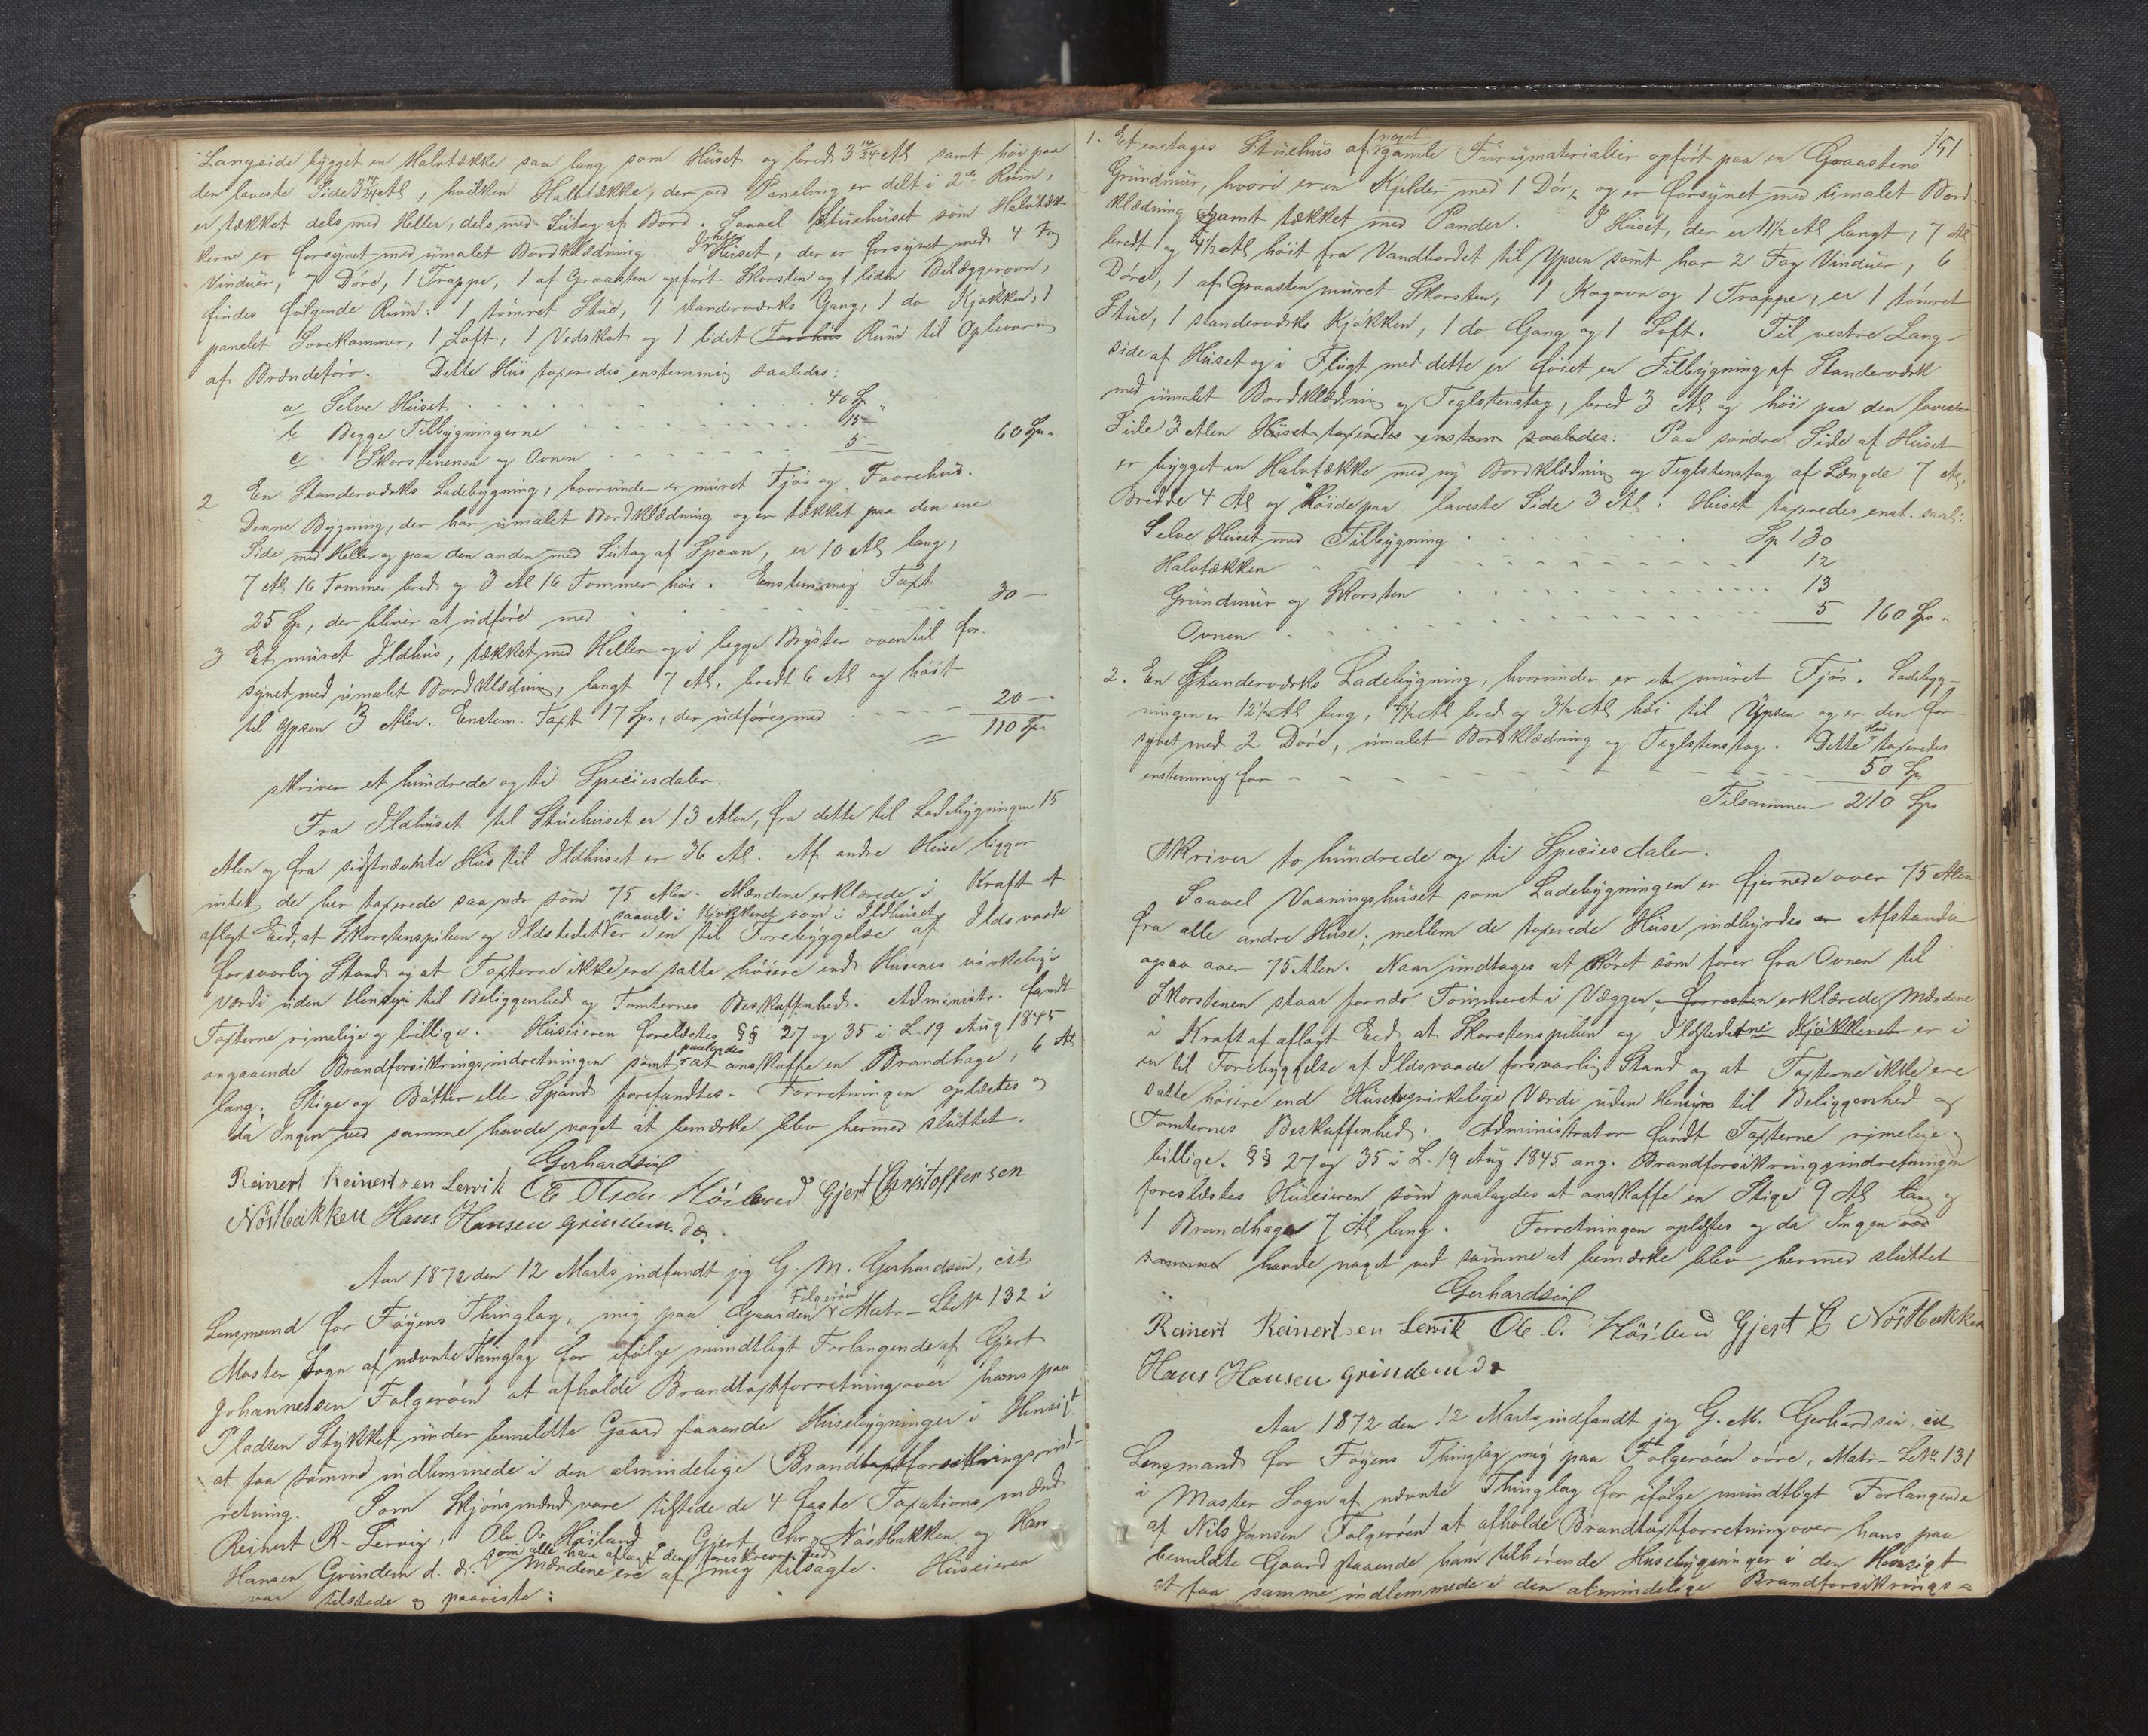 Langside bygget en Halvtække saa lang som Huset og bred 3 14/24 Al samt høi paa
den laveste Side 3 14/24 Al, hvilken Halvtække, der ved Paneling er delt i 2de Rum,
er tækket dels med Heller, dels med Sutag af Bord. Saavel Stuehuset som Halvtæk-
kerne er forsynet med umalet Bordklædning. I hele Huset, der er forsynet med 4 Fag
Vinduer, 7 Døre, 1 Trappe, 1 af Graasten opført Skorsten og 1 liden Belæggerovn,
findes følgende Rum: 1 tømret Stue, 1 standerværks Gang, 1 do Kjøkken, 1
panelet Sovekammer, 1 Loft, 1 Vedskot og 1 lidet Rum til Opbevaring
af Brændetørv. Dette Hus taxeredes enstemmig saaledes:
a Selve Huset 40 Sp.
b Begge Tilbygningerne 15 —
c Skorstenen og Ovnen 5 — 60 Spd.
2 En Standerværks Ladebygning, hvorunder er muret Fjøs og Faarehus.
Denne Bygning, der har umalet Bordklædning og er tækket paa den ene
Side med Heller og paa den anden med Sutag af Spaan, er 10 Al lang,
7 Al 16 Tommer bred og 3 Al 16 Tommer høi. Enstemmig Taxt
25 Sp, der bliver at udføre med 30 —
3 Et muret Ildhus, tækket med Heller og i begge Bryster oventil for-
synet med umalet Bordklædning, langt 7 Al, bredt 6 Al og høit
til Ypsen 3 Alen. Enstem. Taxt 17 Sp, der udføres med 20 —
110 Spd.
skriver et hundrede og ti Speciesdaler.
Fra Ildhuset til Stuehuset er 13 Alen, fra dette til Ladebygningen 15
Alen og fra sidstnævnte Hus til Ildhuset er 36 Al. Af andre Huse ligger
intet de her taxerede saa nær som 75 Alen. Mændene erklærede i Kraft af
aflagt Eed, at Skorstenspiben og Ildstedet saavel i Kjøkkenet som i Ildhuset er i en til Forebyggelse af Ildsvaade
forsvarlig Stand og at Taxterne ikke ere satte høiere end Husenes virkelige
Værdi uden Hensyn til Beliggenhed og Tomternes Beskaffenhed. Administr. fandt
Taxterne rimelige og billige. Huseieren forelæstes §§ 27 og 35 i L. 19 Aug 1845
angaaende Brandforsikringsindretningen samt paalagdes at anskaffe en Brandhage, 6 Al
lang; Stige og Bøtter eller Spand forefandtes. Forretningen oplæstes og
da Ingen ved samme havde noget at bemærke blev hermed sluttet.
Gerhardsen
Reinert Reinertsen Lervik Ole Olsen Höiland Gjert Christoffersen
Nöstbakken Hans Hansen Grindem. d.æ.
Aar 1872 den 12 Marts indfandt jeg G. M. Gerhardsen, cst
Lensmand for Føyens Thinglag, mig paa Gaarden Folgerøen Matr-LNo 132 i
Moster Sogn af nævnte Thinglag for ifølge mundtligt Forlangende af Gjert
Johannessen Folgerøen at afholde Brandtaxtforretning over hans paa
Pladsen Stykket under bemeldte Gaard staaende Husebygninger i Hensigt
at faa samme indlemmede i den almindelige Brandforsikringsind-
retning. Som Skjønsmænd vare tilstede de 4 faste Taxationsmænd
Reinert R. Lervig, Ole O. Høiland, Gjert Chr. Nøstbakken og Hans
Hansen Grindem d. æ. som alle have aflagt den foreskrevne Eed Mændene ere af mig tilsagte. Huseieren
var tilstede og paaviste:
151
1. Et enetages Stuehus af noget gamle Furumaterialier opført paa en Graastens
Grundmur, hvori er en Kjelder med 1 Dør, og er forsynet med umalet Bord
klædning samt tækket med Pander. I Huset, der er 11 1/2 Al langt, 7 Al
bredt og 4 1/2 Al høit fra Vandbordet til Ypsen samt har 2 Fag Vinduer, 6
Døre, 1 af Graasten muret Skorsten, 1 Kogovn og 1 Trappe, er 1 tømret
Stue, 1 standerværks Kjøkken, 1 do Gang og 1 Loft. Til vestre Lang-
side af Huset og i Flugt med dette er føiet en Tilbygning af Standerværk
med umalet Bordklædning og Teglstenstag, bred 3 Al og høi paa den laveste
Side 3 Alen Huset taxeredes enstem saaledes: Paa søndre Side af Huset
er bygget en Halvtække med ny Bordklædning og Teglstenstag af Længde 7 Al,
Bredde 4 Al og Høide paa laveste Side 3 Al. Huset taxeredes enst. saal:
Selve Huset med Tilbygning Sp 130
Halvtækken 12
Grundmur og Skorsten 13
Ovnen 5 160 Spd.
2. En Standerværks Ladebygning, hvorunder er et muret Fjøs. Ladebyg-
ningen er 12 1/2 Al lang, 7 1/2 Al bred og 3 1/2 Al høi til Ypsen og er den for-
synet med 2 Døre, umalet Bordklædning og Teglstenstag. Dette Hus taxeredes
enstemmig for 50 Sp
Tilsammen 210 Spd
Skriver to hundrede og ti Speciesdaler.
Saavel Vaaningshuset som Ladebygningen er fjernede over 75 Alen
fra alle andre Huse; mellem de taxerede Huse indbyrdes er Afstanden
ogsaa over 75 Alen. Naar undtages at Røret som fører fra Ovnen til
Skorstenen staar for nær Tømmeret i Væggen, erklærede Mændene
i Kraft af aflagt Eed at Skorstenspiben og Ildstedet i Kjøkkenet er i
en til Forebyggelse af Ildsvaade forsvarlig Stand og at Taxterne ikke ere
satte høiere end Husenes virkelige Værdi uden Hensyn til Beliggenhed og
Tomternes Beskaffenhed. Administrator fandt Taxterne rimelige og
billige. §§ 27 og 35 i L. 19 Aug 1845 ang. Brandforsikringsindretningen
forelæstes Huseieren som paalagdes at anskaffe en Stige 9 Al lang og
1 Brandhage 7 Al lang. Forretningen oplæstes og da Ingen ved
samme havde noget ved samme at bemærke blev hermed sluttet
Gerhardsen
Reinert Reinertsen Lervik Ole O. Höiland Gjert C Nöstbakken
Hans Hansen Grindem d æ
Aar 1872 den 12 Marts indfandt jeg G. M. Gerhardsen, cst
Lensmand for Føyens Thinglag mig paa Folgerøen øvre, Matr-LNo 131
i Moster Sogn af nævnte Thinglag for ifølge mundtligt Forlangende
af Nils Jansen Folgerøen at afholde Brandtaxtforretning over hans paa
bemeldte Gaard staaende ham tilhørende Husebygninger i den Hensigt
at faa samme indlemmede i den almindelige Brandforsikrings-